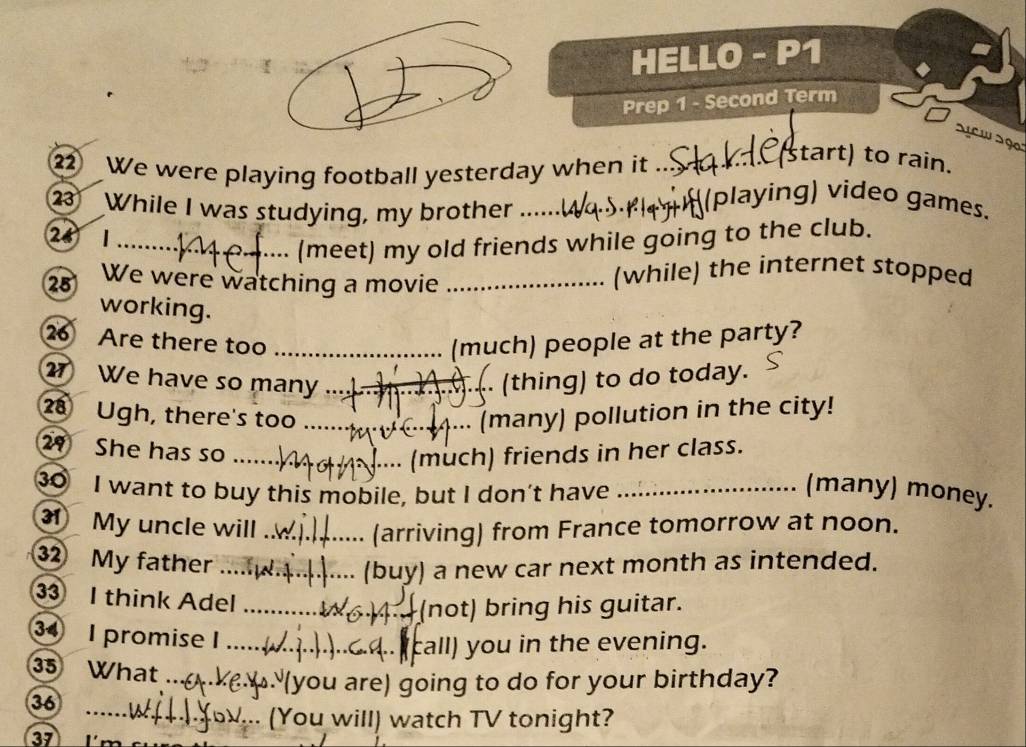 HELLO - P1
Prep 1 - Second Term
22 We were playing football yesterday when it ...started (start) to rain.
23 While I was studying, my brother ......was playing (playing) video games.
24 I ..........met.... (meet) my old friends while going to the club.
25 We were watching a movie ........................ (while) the internet stopped
working.
26 Are there too ........................ (much) people at the party?
27 We have so many ...things.. (thing) to do today. s
28 Ugh, there's too ......much... (many) pollution in the city!
29 She has so .......many.... (much) friends in her class.
30 I want to buy this mobile, but I don't have ........................ (many) money.
31 My uncle will ..will..... (arriving) from France tomorrow at noon.
32 My father .....will.... (buy) a new car next month as intended.
33 I think Adel ..........won't (not) bring his guitar.
34 I promise I .....will call (call) you in the evening.
35 What ...are you (you are) going to do for your birthday?
36 ......will you... (You will) watch TV tonight?
37 I'm